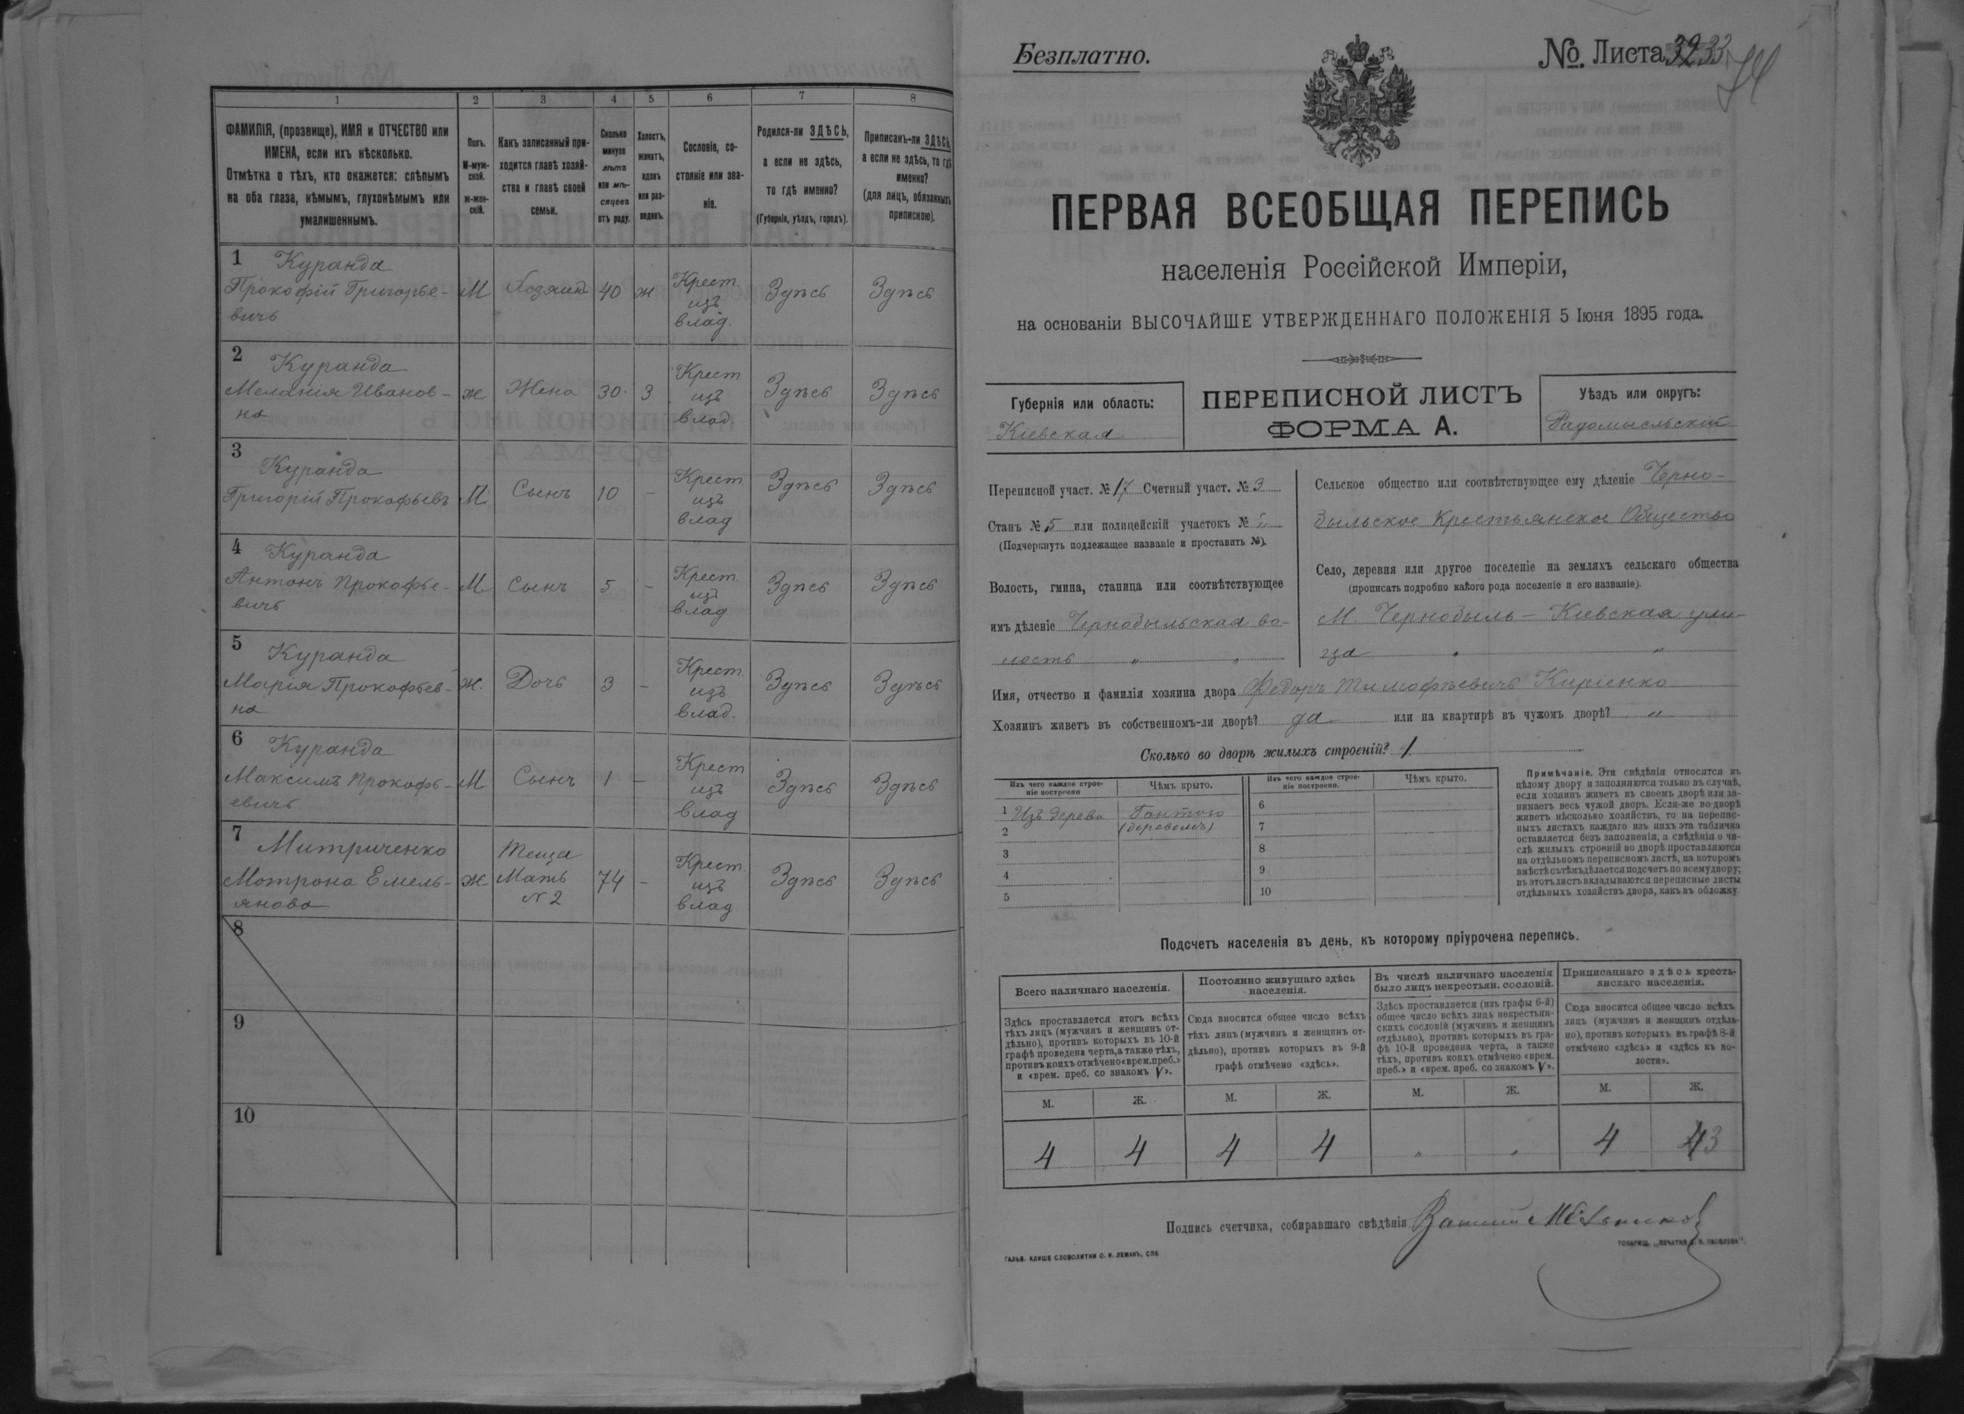 1 2 3 4 5 6 7 8
ФАМИЛІЯ, (прозвище), ИМЯ и ОТЧЕСТВО или
ИМЕНА, если ихъ нѣсколько.
Отмѣтка о тѣхъ, кто окажется: слѣпымъ
на оба глаза, нѣмымъ, глухонѣмымъ или
умалишеннымъ.
Полъ.
М-муж-
ской.
ж-жен-
скій.
Какъ записанный при-
ходится главѣ хозяй-
ства и главѣ своей
семьи.
Сколько
минуло
лѣтъ
или мѣ-
сяцевъ
отъ роду.
Холостъ,
женатъ,
вдовъ
или раз-
веденъ.
Сословіе, со-
стояніе или зва-
ніе.
Родился-ли ЗДѢСЬ,
а если не здѣсь,
то гдѣ именно?
(Губернія, уѣздъ, городъ).
Приписанъ-ли ЗДѢСЬ,
а если не здѣсь, то гдѣ
именно?
(для лицъ, обязанныхъ
припискою).
1 Куранда
Прокофій Григорье-
вичъ
М Хозяинъ 40 ж
Крест.
изъ
влад.
Здѣсь Здѣсь
2 Куранда
Меланія Иванов-
на
ж Жена 30 З
Крест
изъ
влад.
Здѣсь Здѣсь
3 Куранда
Григорій Прокофьевъ
М Сынъ 10 -
Крест
изъ
влад
Здѣсь Здѣсь
4 Куранда
Антонъ Прокофье-
вичъ
М Сынъ 5 -
Крест
изъ
влад
Здѣсь Здѣсь
5 Куранда
Марія Прокофьев-
на
ж. Дочь 3 -
Крест
изъ
влад.
Здѣсь Здѣсь
6 Куранда
Максимъ Прокофь-
евичъ
М Сынъ 1 -
Крест
изъ
влад
Здѣсь Здѣсь
7 Митриченко
Мотрона Емель-
янова
ж
Теща
Мать
N 2
74 -
Крест.
изъ
влад
Здѣсь Здѣсь
8
9
10
Безплатно.
№ Листа 3233
ПЕРВАЯ ВСЕОБЩАЯ ПЕРЕПИСЬ
населенія Россійской Имперіи,
на основаніи ВЫСОЧАЙШЕ УТВЕРЖДЕННАГО ПОЛОЖЕНІЯ 5 Іюня 1895 года.
Губернія или область:
Кіевская
ПЕРЕПИСНОЙ ЛИСТЪ
ФОРМА А.
Уѣздъ или округъ:
Радомысльскій
Переписной участ. № 17 Счетный участ. № 3
Станъ № 5 или полицейскій участокъ № "
(Подчеркнуть подлежащее названіе и проставить №).
Волость, гмина, станица или соотвѣтствующее
имъ дѣленіе Чернобыльская во-
лость " "
Сельское общество или соотвѣтствующее ему дѣленіе Черно-
быльское Крестьянское Общество
Село, деревня или другое поселеніе на земляхъ сельскаго общества
(прописать подробно какого рода поселеніе и его названіе).
М. Чернобыль - Кіевская ули-
ца " "
Имя, отчество и фамилія хозяина двора Федоръ Тимофѣевичъ Киріенко
Хозяинъ живетъ въ собственномъ-ли дворѣ? да или на квартирѣ въ чужомъ дворѣ? "
Сколько во дворѣ жилыхъ строеній? 1
Изъ чего каждое строе-
ніе построено
Чѣмъ крыто.
Изъ чего каждое строе-
ніе построено.
Чѣмъ крыто.
1 Изъ дерева
(деревомъ)
2
3
4
5
6
7
8
9
10
Примѣчаніе. Эти свѣдѣнія относятся къ
цѣлому двору и заполняются только въ случаѣ,
если хозяинъ живетъ въ своемъ дворѣ или за-
нимаетъ весь чужой дворъ. Если-же во дворѣ
живетъ нѣсколько хозяйствъ, то на перепис-
ныхъ листахъ каждаго изъ нихъ эта табличка
оставляется безъ заполненія, а свѣдѣнія о чи-
слѣ жилыхъ строеній во дворѣ проставляются
на отдѣльномъ переписномъ листѣ, на которомъ
вмѣстѣ съ тѣмъ дѣлается подсчетъ по всему двору;
въ этотъ листъ вкладываются переписные листы
отдѣльныхъ хозяйствъ двора, какъ въ обложку.
Подсчетъ населенія въ день, къ которому пріурочена перепись.
Всего наличнаго населенія.
Здѣсь проставляется итогъ всѣхъ
тѣхъ лицъ (мужчинъ и женщинъ от-
дѣльно), противъ которыхъ въ 10-й
графѣ проведена черта, а также тѣхъ,
противъ коихъ отмѣчено «врем. преб.»
и «врем. преб. со знакомъ V».
Постоянно живущаго здѣсь
населенія.
Сюда вносится общее число всѣхъ
тѣхъ лицъ (мужчинъ и женщинъ от-
дѣльно), противъ которыхъ въ 9-й
графѣ отмѣчено «здѣсь».
Въ числѣ наличнаго населенія
было лицъ некрестьян. сословій.
Здѣсь проставляется (изъ графы 6-й)
общее число всѣхъ лицъ некрестьян-
скихъ сословій (мужчинъ и женщинъ
отдѣльно), противъ которыхъ въ гра-
фѣ 10-й проведена черта, а также
тѣхъ, противъ коихъ отмѣчено «врем.
преб.» и «врем. преб. со знакомъ V».
Приписаннаго здѣсь кресть-
янскаго населенія.
Сюда вносится общее число всѣхъ
лицъ (мужчинъ и женщинъ отдѣль-
но), противъ которыхъ въ графѣ 8-й
отмѣчено «здѣсь» и «здѣсь къ во-
лости».
М. Ж. М. Ж. М. Ж. М. Ж.
4 4 4 4 " " 4 43
Подпись счетчика, собиравшаго свѣдѣнія
ГАЛЬВ. КЛИШЕ СЛОВОЛИТНИ О. И. ЛЕМАНЪ, СПБ.